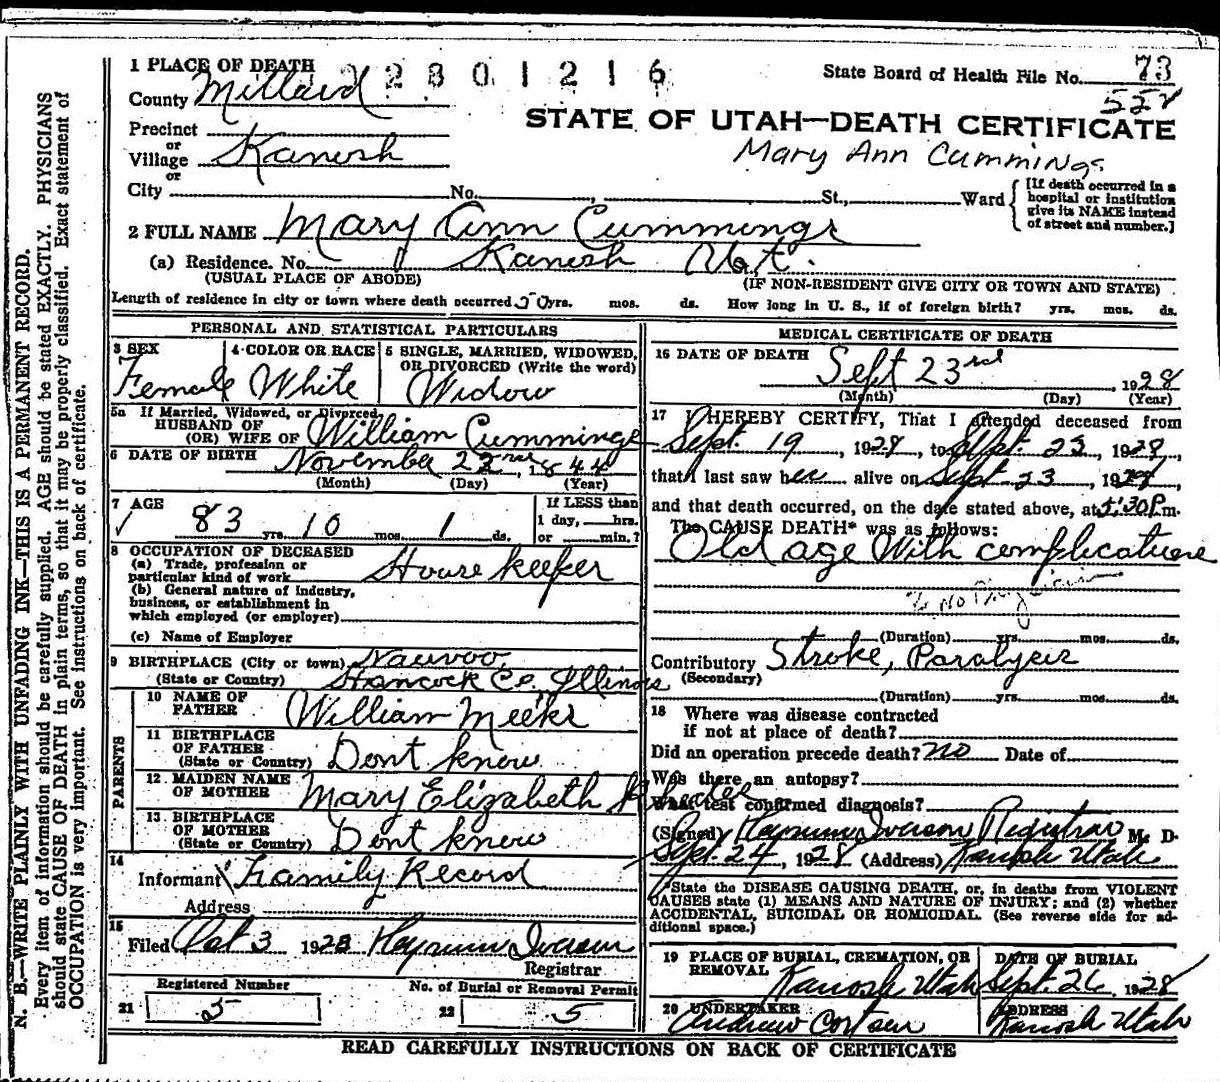 N. B.—WRITE PLAINLY WITH UNFADING INK—THIS IS A PERMANENT RECORD.
Every item of information should be carefully supplied. AGE should be stated EXACTLY. PHYSICIANS
should state CAUSE OF DEATH in plain terms, so that it may be properly classified. Exact statement of
OCCUPATION is very important. See instructions on back of certificate.
1 PLACE OF DEATH 2801216
State Board of Health File No. 73
County Millard
558
STATE OF UTAH—DEATH CERTIFICATE
Mary Ann Cummings
Precinct
or
Village Kanosh
or
City No. St., Ward
[If death occurred in a
hospital or institution
give its NAME instead
of street and number.]
2 FULL NAME Mary Ann Cummings
(a) Residence. No. Kanosh Ut.
(USUAL PLACE OF ABODE) (IF NON-RESIDENT GIVE CITY OR TOWN AND STATE)
Length of residence in city or town where death occurred 50 yrs. mos. ds. How long in U. S., if of foreign birth? yrs. mos. ds.
PERSONAL AND STATISTICAL PARTICULARS
3 SEX
Female
4 COLOR OR RACE
White
5 SINGLE, MARRIED, WIDOWED,
OR DIVORCED (Write the word)
Widow
5a If Married, Widowed, or Divorced
HUSBAND OF
(OR) WIFE OF William Cummings
6 DATE OF BIRTH November 22nd, 1844
(Month) (Day) (Year)
7 AGE
83 yrs. 10 mos. 1 ds.
If LESS than
1 day, hrs.
or min.?
8 OCCUPATION OF DECEASED
(a) Trade, profession or
particular kind of work House keeper
(b) General nature of industry,
business, or establishment in
which employed (or employer)
(c) Name of Employer
9 BIRTHPLACE (City or town) Nauvoo
(State or Country) Hancock Co. Illinois
PARENTS
10 NAME OF
FATHER William Meeks
11 BIRTHPLACE
OF FATHER
(State or Country) Dont know
12 MAIDEN NAME
OF MOTHER Mary Elizabeth
13 BIRTHPLACE
OF MOTHER
(State or Country) Dont know
14
Informant Family Record
Address
15
Filed Oct 3 1928 Heyrum Iverson
Registrar
Registered Number
21 5
No. of Burial or Removal Permit
22 5
MEDICAL CERTIFICATE OF DEATH
16 DATE OF DEATH Sept 23rd, 1928
(Month) (Day) (Year)
17 I HEREBY CERTIFY, That I attended deceased from
Sept. 19, 1928, to Sept. 23, 1928,
that I last saw her alive on Sept 23, 1928,
and that death occurred, on the date stated above, at 5:30 P.m.
The CAUSE DEATH* was as follows:
Old age With complications
No Physician
(Duration) yrs. mos. ds.
Contributory Stroke, Paralysis
(Secondary)
(Duration) yrs. mos. ds.
18 Where was disease contracted
if not at place of death?
Did an operation precede death? No Date of
Was there an autopsy?
What test confirmed diagnosis?
(Signed) Heyrum Iverson Registrar M. D.
Sept. 24, 1928 (Address) Kanosh Utah
*State the DISEASE CAUSING DEATH, or, in deaths from VIOLENT
CAUSES state (1) MEANS AND NATURE OF INJURY; and (2) whether
ACCIDENTAL, SUICIDAL OR HOMICIDAL. (See reverse side for ad-
ditional space.)
19 PLACE OF BURIAL, CREMATION, OR
REMOVAL Kanosh Utah
DATE OF BURIAL
Sept. 26, 1928
20 UNDERTAKER
Andrew
ADDRESS
Kanosh Utah
READ CAREFULLY INSTRUCTIONS ON BACK OF CERTIFICATE